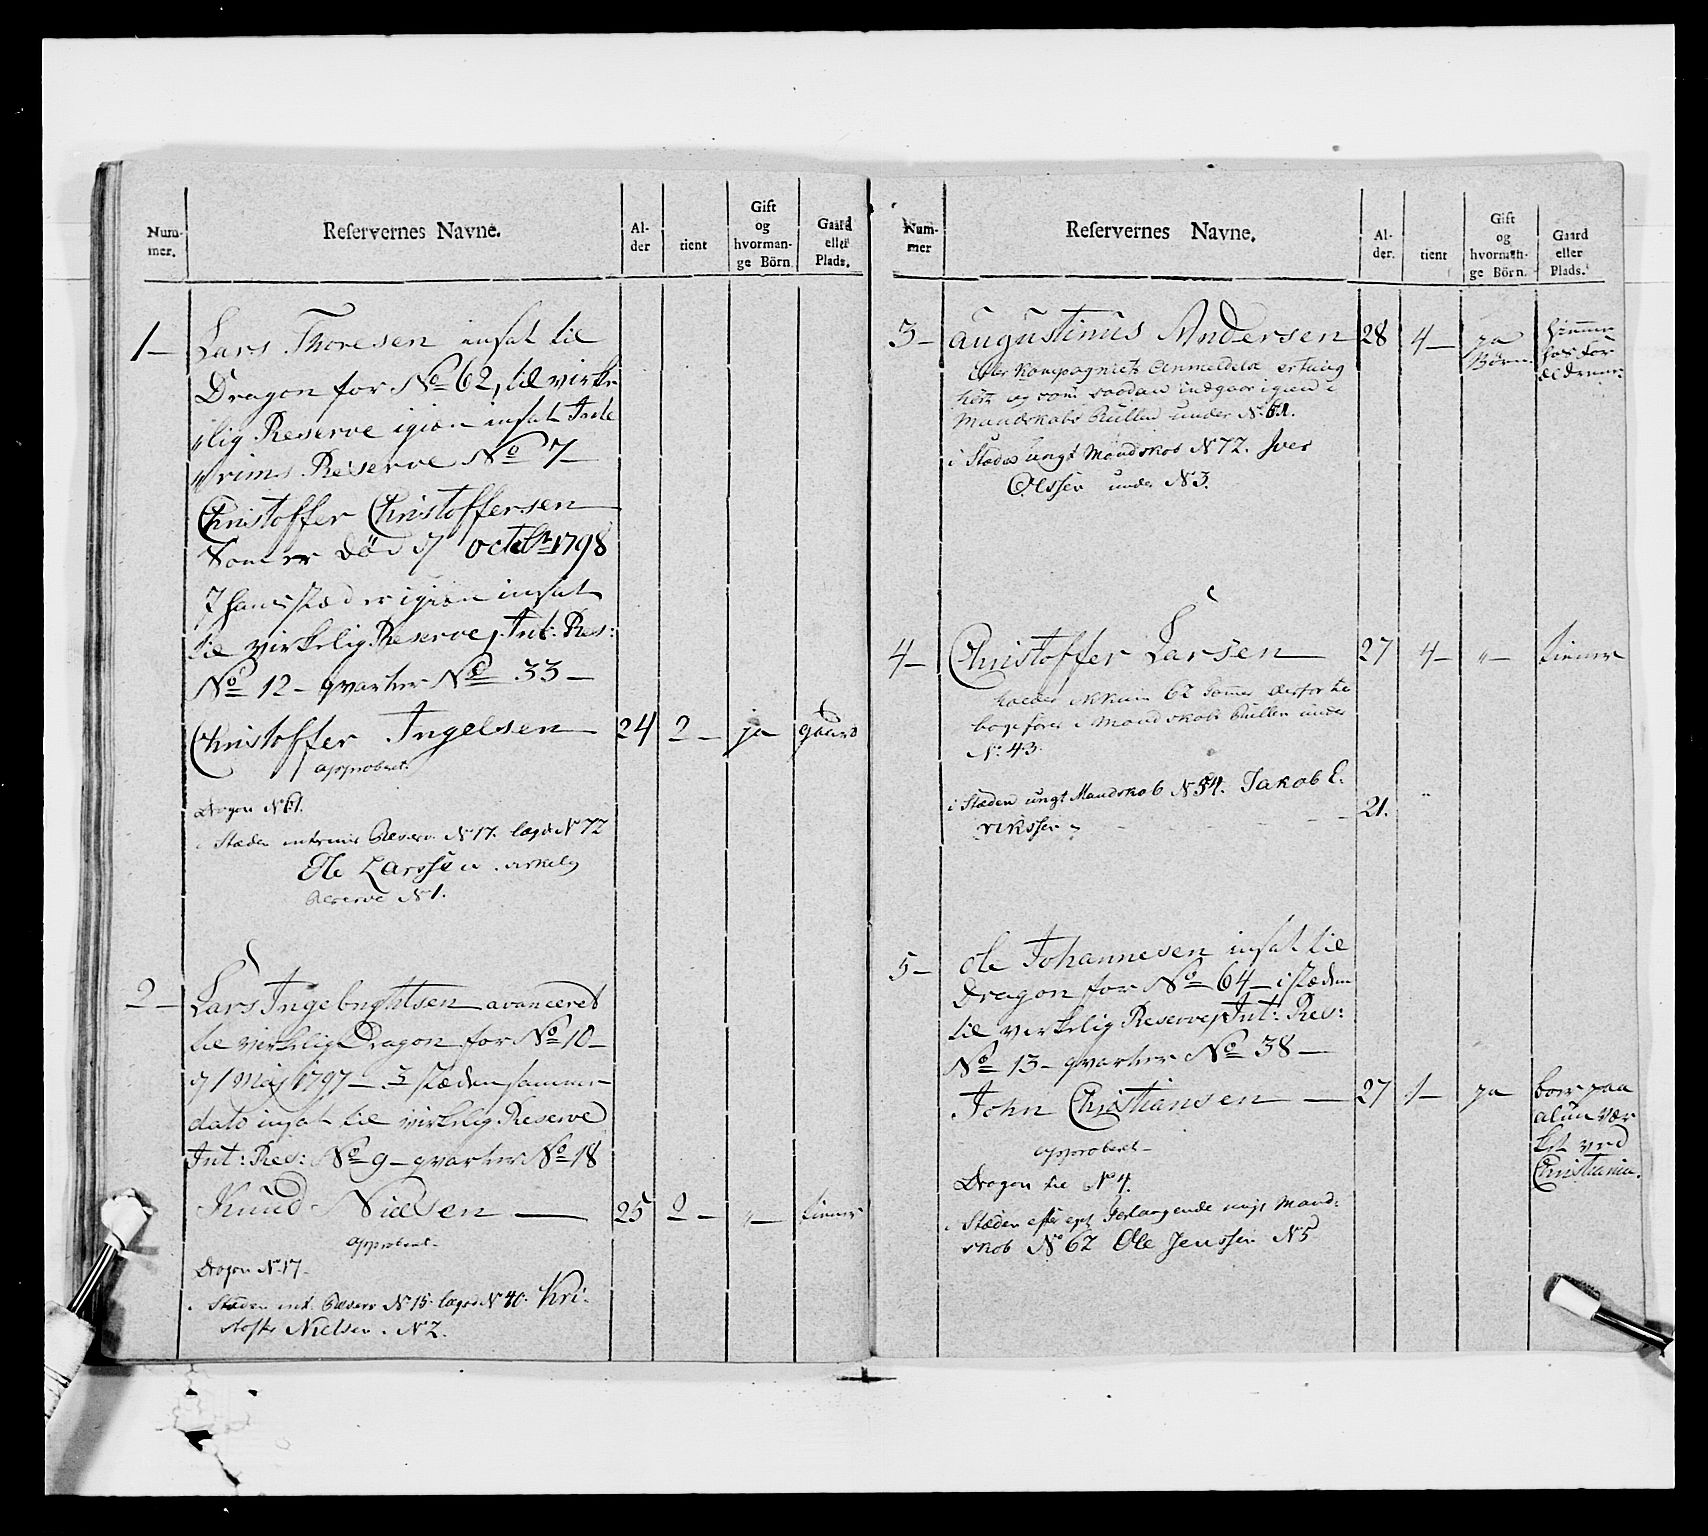 Num-
mer.
Reservernes Navne.
Al-
der
tient
Gift
og
hvorman-
ge Börn.
Gaard
eller
Plads.
1 —
Lars Thoresen insat til
Dragon for No 62, til virke
„lig Reserve igien insat Inte
„rims Reserve No 7 —
Christoffer Christoffersen
Som er död octbr 1798
hans stæd er igien insat
til virkelig Reserve, Int: Res:
No 12 — qvarter No 33 —
Christoffer Ingelsen — 24 2 — ja gaard
approberet.
Dragon No 61.
i Stæden intrims Reserv. No 17. lægd No 72
Ole Larssen virkelig
Reserve No 1.
2 —
Lars Ingebrightsen avanceret
til virkelig Dragon for No 10 —
1 Maj 1797 — I stæden samme
dato insat til virkelig Reserve
Int: Res: No 9 — qvarter No 18
Knud Nielsen — 25 2 — „ — tiener
approberet.
Dragon No 17 —
i Stæden int. Reserv No 15 lægd No 40. Kri-
stoffer Nielsen. No 2.
Num-
mer
Reservernes Navne.
Al-
der.
tient
Gift
og
hvorman-
ge Börn.
Gaard
eller
Plads.
3 —
Augustinus Andersen 28 4 — ja
Börn
hiemme
hos for
ældrene
efter Kompagniets Anmeldelse
og som saadan indgaar igien i
Mandskabs Rullen under No 61.
i Stæden ungt Mandskab No 72. Iver
Olssen under No 3.
4 —
Christoffer Larsen — 27 4 — „ — tiener
holder ikkun 62 Tommer derfor til
bageföres i Mandskabs Rullen under
No 43.
i Stæden ungt Mandskab No 54. Jakob E.
rikssen — 21.
5 —
Ole Johannesen insat til
Dragon for No 64 — i stæden
til virkelig Reserve, Int: Res:
No 13 — qvarter No 38 —
John Christiansen — 27 1 — ja
boer paa
alun vær
ket ved
Christiania.
approberet —
Dragon til No 4.
i Stæden efter eget Forlangende ungt Mand-
skab No 62 Ole Jenssen No 5